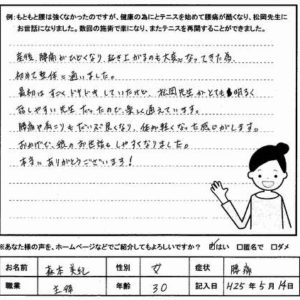 例：もともと腰は強くなかったのですが、健康の為にとテニスを始めて腰痛が酷くなり、松岡先生に
お世話になりました。数回の施術で楽になり、またテニスを再開することができました。
産後、腰痛がひどくなり、起き上がるのも大変になってきた為
初めて整体に通いました。
最初はすごくドキドキしていたけど、松岡先生がとても明るく
話しやすい先生だったので、楽しく通えています。
腰痛や肩こりもだいぶ良くなり、体が軽くなった感じがします。
おかげで、娘のお世話もしやすくなりました。
本当にありがとうございます！
※あなた様の声を、ホームページなどでご紹介してもよろしいですか？ はい □匿名で □ダメ
お名前 森本 美紀 性別 女 症状 腰痛
職業 主婦 年齢 30 記入日 H25年5月14日